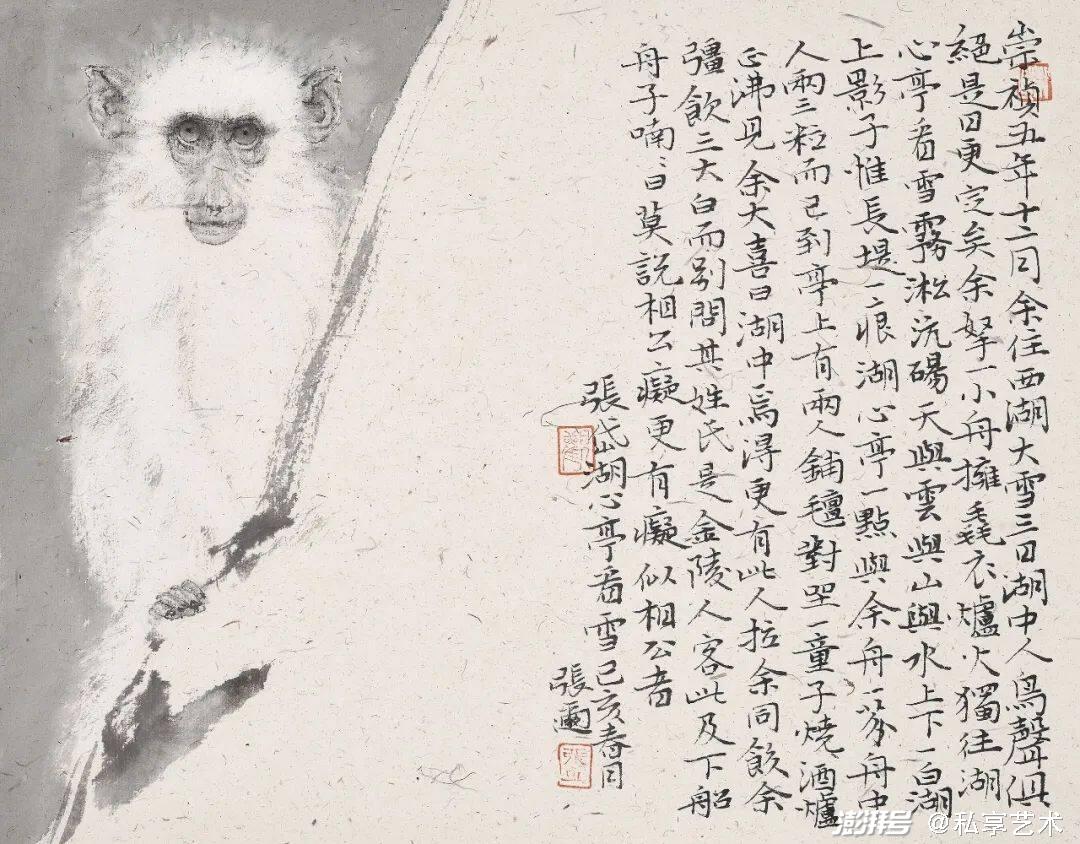 崇禎五年十二月余住西湖大雪三日湖中人鳥聲俱
絕是日更定矣余拏一小舟擁毳衣爐火獨往湖
心亭看雪霧淞沆碭天與雲與山與水上下一白湖
上影子惟長堤一痕湖心亭一點與余舟一芥舟中
人兩三粒而已到亭上有兩人鋪氈對坐一童子燒酒爐
正沸見余大喜曰湖中焉得更有此人拉余同飲余
彊飲三大白而別問其姓氏是金陵人客此及下船
舟子喃〻曰莫說相公癡更有癡似相公者
張岱湖心亭看雪己亥春月
張
澎湃号 @私享艺术